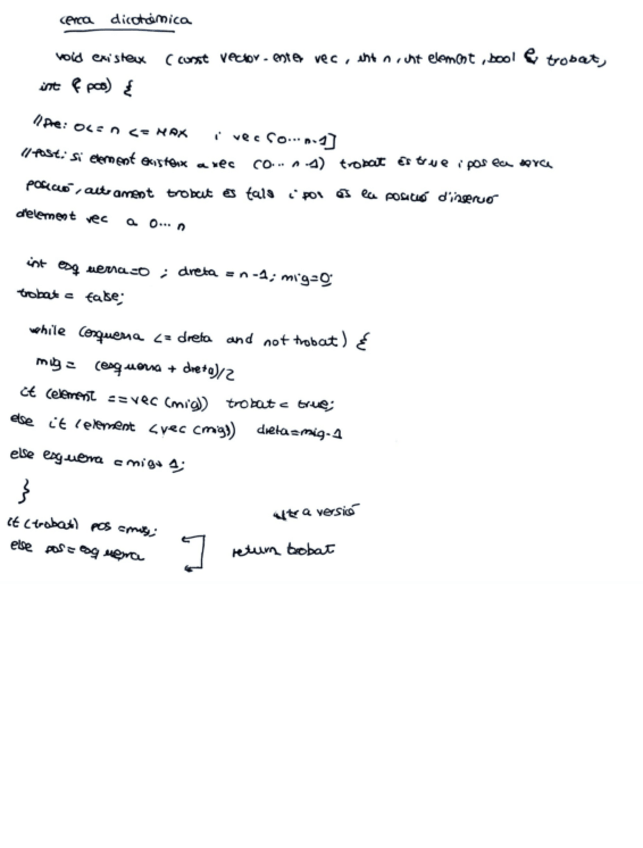 cerca dicotòmica
void existeix (const vector-enter vec, int n, int element, bool & trobat,
int & pos) {
//Pre: 0<= n <= MAX i vec [0... n-1]
//Post: si element existeix a vec (0... n-1) trobat és true i pos la seva
posició, altrament trobat és fals i pos és la posició d'inserció
d'element vec a 0... n
int esquerra=0 ; dreta = n-1; mig=0;
trobat = false;
while (esquerra <= dreta and not trobat) {
mig = (esquerra + dreta)/2
if (element == vec (mig)) trobat = true;
else if (element < vec (mig)) dreta=mig-1
else esquerra = mig+1;
}
if (trobat) pos =mig; altra versió
else pos=esquerra return trobat